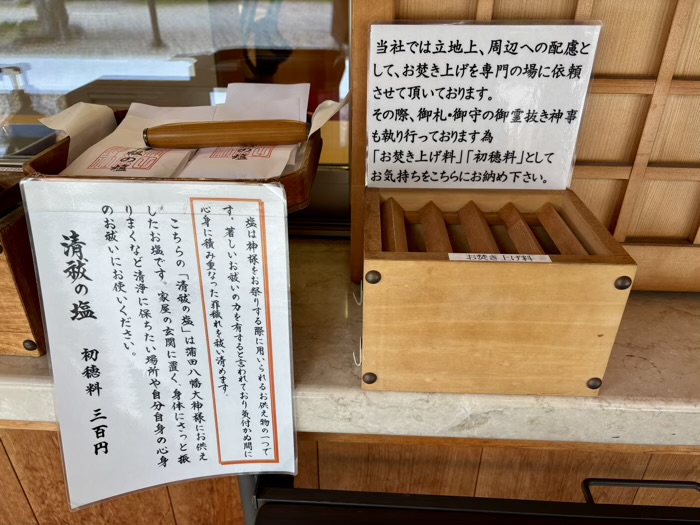 当社では立地上、周辺への配慮と
して、お焚き上げを専門の場に依頼
させて頂いております。
その際、御札・御守の御霊抜き神事
も執り行っております為
「お焚き上げ料」「初穂料」として
お気持ちをこちらにお納め下さい。
お焚き上げ料
塩は神様をお祭りする際に用いられるお供え物の一つで
す。著しいお祓いの力を有すると言われており気付かぬ間に
心身に積み重なった罪穢れを祓い清めます。
こちらの「清祓の塩」は蒲田八幡大神様にお供え
したお塩です。家屋の玄関に置く、身体にさっと振
りまくなど清浄に保ちたい場所や自分自身の心身
のお祓いにお使いください。
清祓の塩
初穂料 三百円
祓の塩
の塩